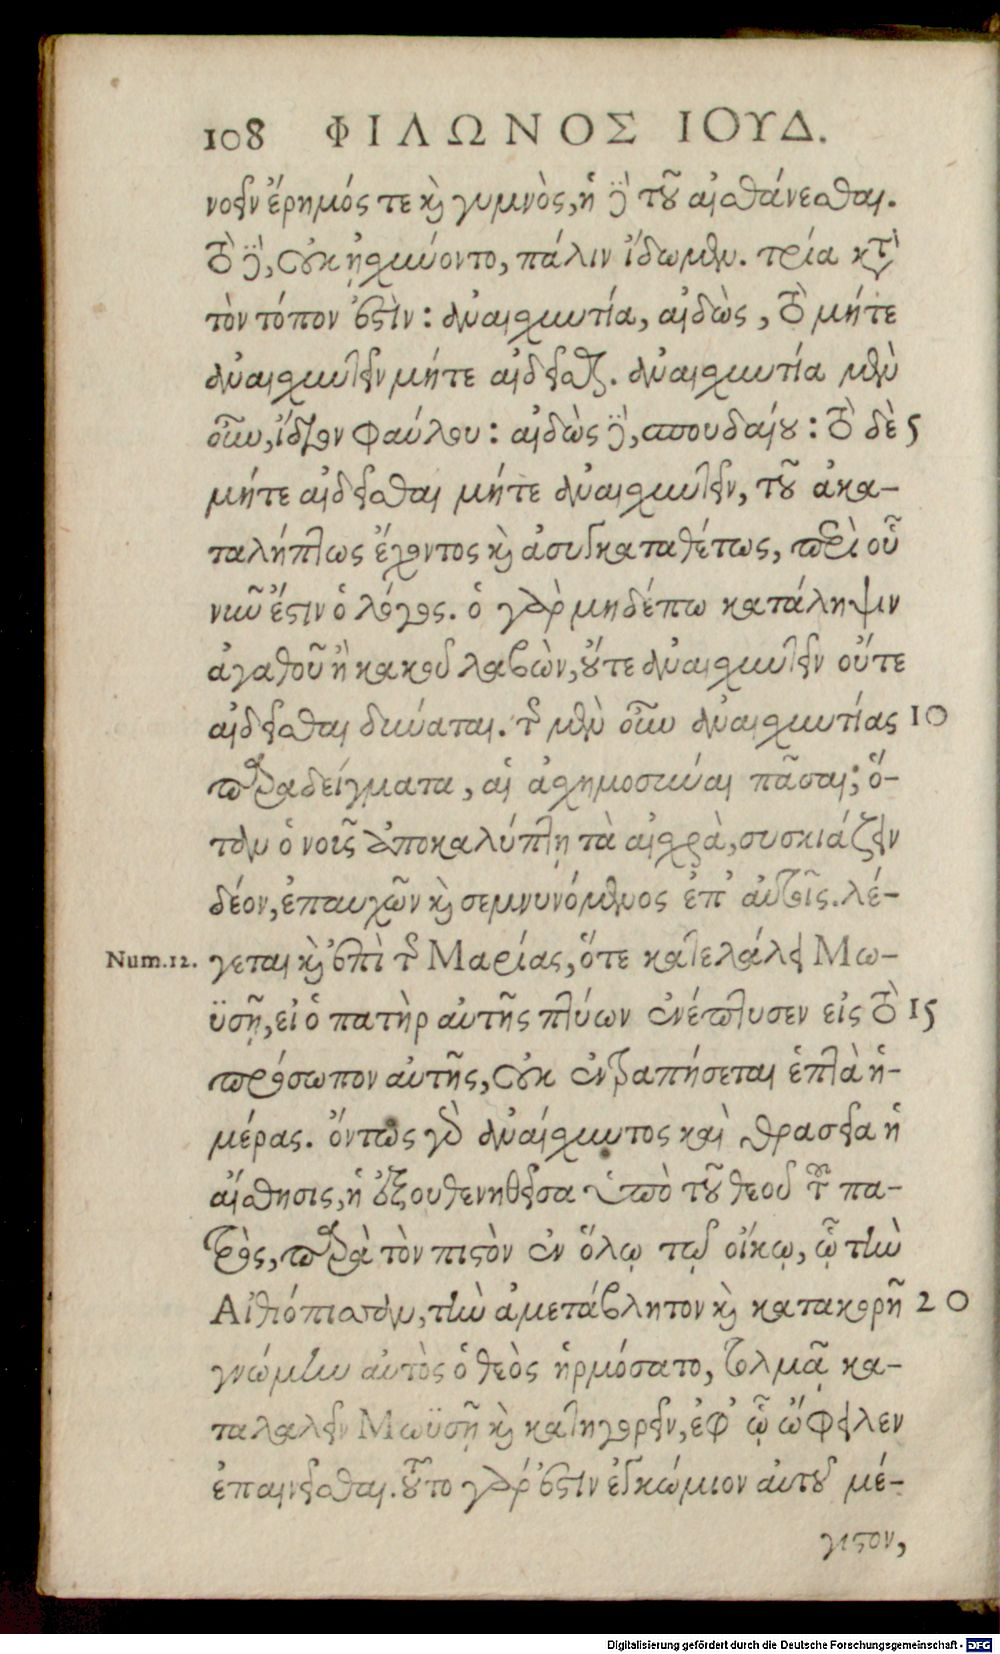 108 ΦΙΛΩΝΟΣ ΙΟΥΔ.
νοεῖν ἔρημός τε καὶ γυμνὸς, ἡ δὲ τοῦ αἰσθάνεσθαι.
τὸ δὲ, οὐκ ᾐσχύνοντο, πάλιν ἴδωμεν. τρία κατὰ
τὸν τόπον ἐστὶν: ἀναισχυντία, αἰδὼς, τὸ μήτε
ἀναισχυντεῖν μήτε αἰδεῖσθαι. ἀναισχυντία μὲν
οὖν, ἴδιον φαύλου: αἰδὼς δὲ, σπουδαίου: τὸ δὲ 5
μήτε αἰδεῖσθαι μήτε ἀναισχυντεῖν, τοῦ ἀκα-
ταλήπτως ἔχοντος καὶ ἀσυγκαταθέτως, περὶ οὗ
νῦν ἔστιν ὁ λόγος. ὁ γὰρ μηδέπω κατάληψιν
ἀγαθοῦ ἢ κακοῦ λαβὼν, οὔτε ἀναισχυντεῖν οὔτε
αἰδεῖσθαι δύναται. τῆς μὲν οὖν ἀναισχυντίας 10
παραδείγματα, αἱ ἀσχημοσύναι πᾶσαι; ὅ-
ταν ὁ νοῦς ἀποκαλύπτῃ τὰ αἰσχρὰ, συσκιάζειν
δέον, ἐπαυχῶν καὶ σεμνυνόμενος ἐπ' αὐτοῖς. λέ-
Num.12. γεται καὶ ἐπὶ τῆς Μαρίας, ὅτε κατελάλει Μω-
ϋσῇ, εἰ ὁ πατὴρ αὐτῆς πτύων ἐνέπτυσεν εἰς τὸ 15
πρόσωπον αὐτῆς, οὐκ ἐντραπήσεται ἑπτὰ ἡ-
μέρας. ὄντως γὰρ ἀναίσχυντος καὶ θρασεῖα ἡ
αἴσθησις, ἡ ἐξουθενηθεῖσα ὑπὸ τοῦ θεοῦ τοῦ πα-
τρὸς, παρὰ τὸν πιστὸν ἐν ὅλῳ τῷ οἴκῳ, ᾧ τὴν
Αἰθιόπισσαν, τὴν ἀμετάβλητον καὶ κατακορῆ 20
γνώμην αὐτὸς ὁ θεὸς ἡρμόσατο, τολμᾷ κα-
ταλαλεῖν Μωϋσῇ καὶ κατηγορεῖν, ἐφ' ᾧ ὤφειλεν
ἐπαινεῖσθαι. τοῦτο γάρ ἐστιν ἐγκώμιον αὐτοῦ μέ-
γιστον,
Digitalisierung gefördert durch die Deutsche Forschungsgemeinschaft - DFG